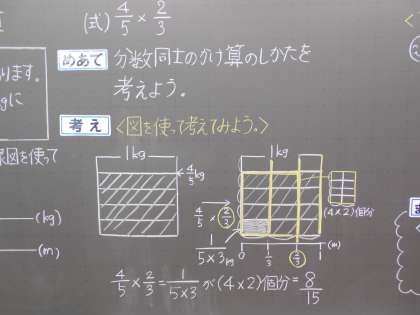 (式) 4/5 × 2/3
めあて 分数同士のかけ算のしかたを
考えよう。
ります。
kgに
考え <図を使って考えてみよう。>
図を使って
1kg
4/5kg
1kg
4/5 × 2/3
(4×2)個分
1/5×3 kg
0 1/3 2/3 1 (m)
(kg)
(m)
4/5 × 2/3 = 1/5×3 が (4×2)個分 = 8/15